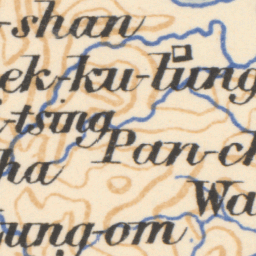 -shan
ek-ku-lung
-tsing
Pan-ch
ha
Wa
ung-om